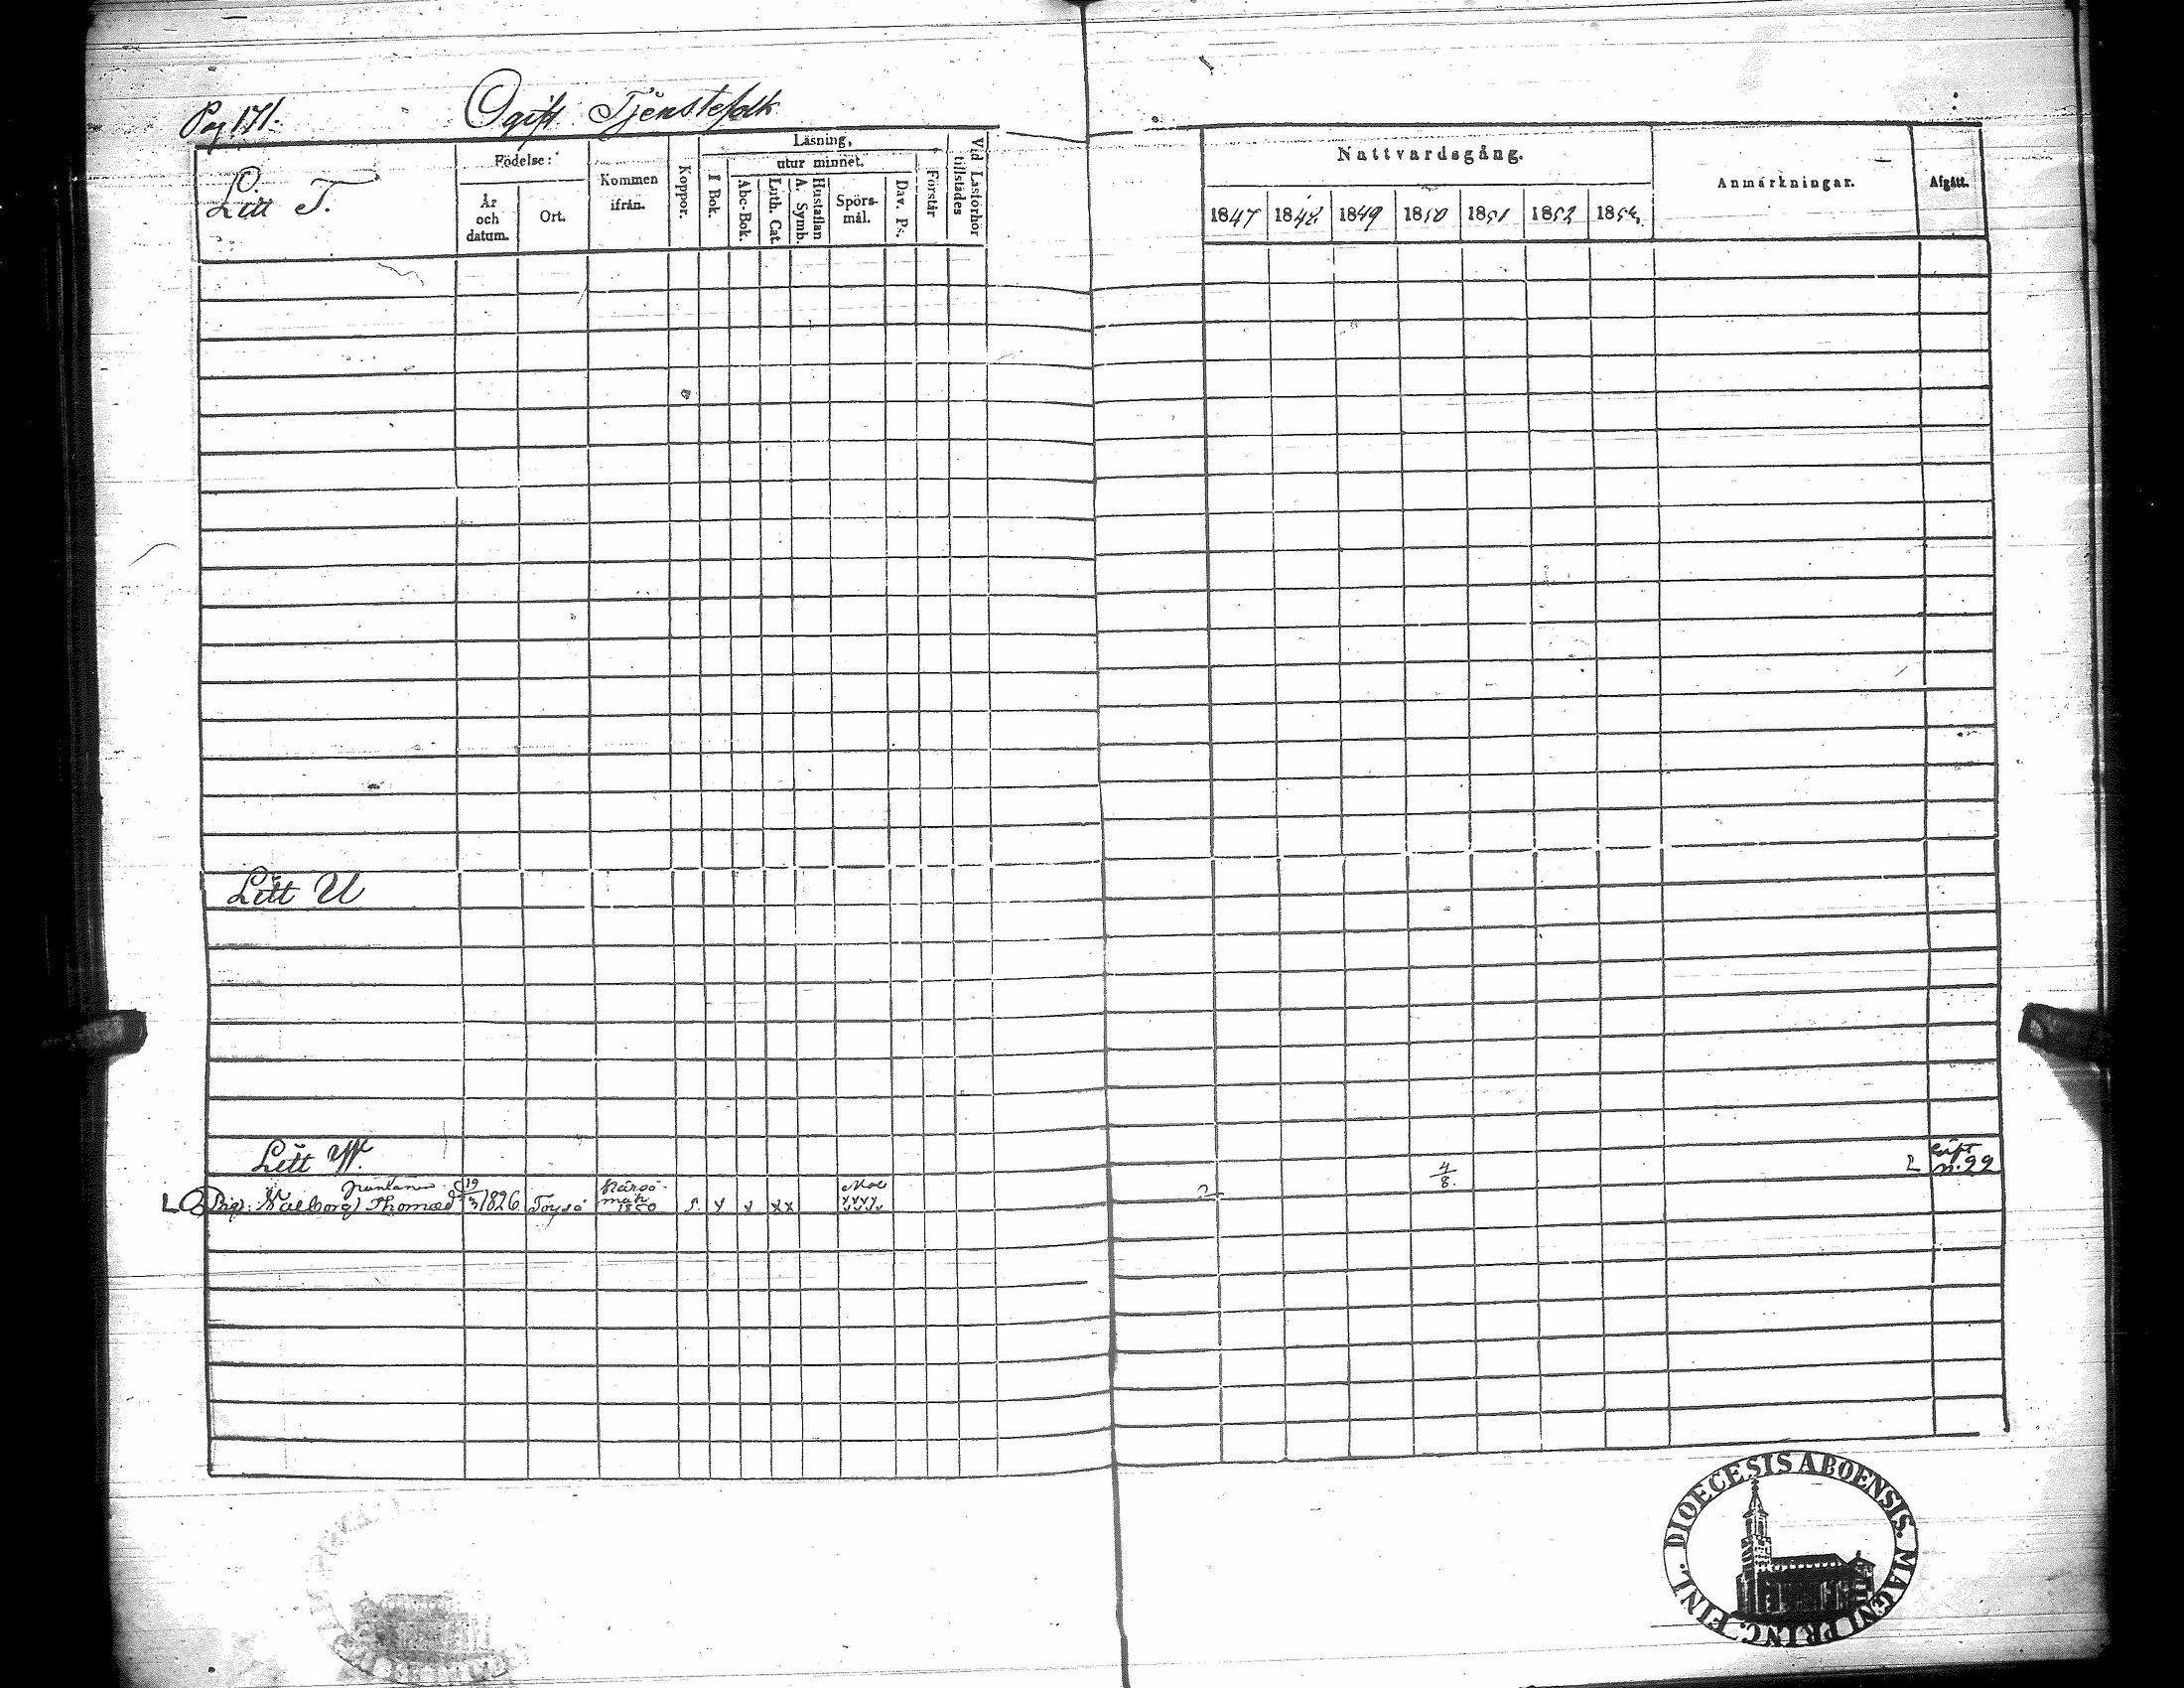 Pag 171.
Ogift Tjenstefolk
Litt T.
Födelse:
År och datum.
Ort.
Kommen ifrån.
Koppor.
Läsning,
utur minnet.
I Bok.
Abc-Bok.
Luth. Cat.
Hustaflan A. Symb.
Spörs-mål.
Dav. Ps.
Förstår
Vid Läsförhör tillstädes
Nattvardsgång.
1847 1848 1849 1850 1851 1852 1853
Anmärkningar.
Afgått.
Litt U
Litt W.
Pig. Walborg Thomasd 19/3 1826 Töysä 1850 x x xx xxxx xxxx
4/8.
n. 22
DIOECESIS ABOENSIS. MAGNI PRINC. FINL.